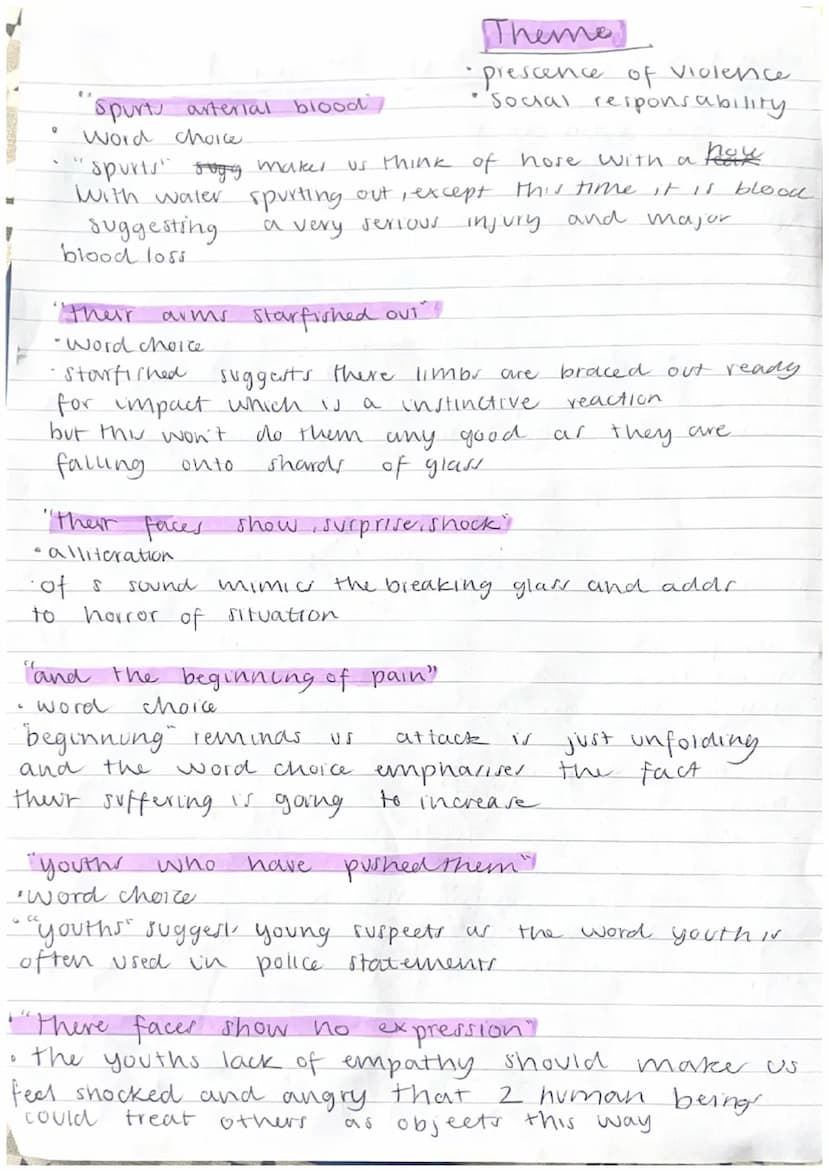 Theme
· prescence of violence
"spurts arterial blood"
· social responsability
· word choice
· "spurts" makes us think of hose with a
with water spurting out, except this time it is blood
suggesting a very serious injury and major
blood loss
"their arms starfished out"
· word choice
· starfished suggests there limbs are braced out ready
for impact which is a instinctive reaction
but this won't do them any good as they are
falling onto shards of glass
"their faces show, surprise, shock"
· alliteration
· of s sound mimics the breaking glass and adds
to horror of situation
"and the beginning of pain"
· word choice
"beginnung" reminds us attack is just unfolding
and the word choice emphasises the fact
their suffering is going to increase
"youths who have pushed them"
· word choice
· "youths" suggests young suspects as the word youth is
often used in police statements
· "There faces show no expression"
· the youths lack of empathy should make us
feel shocked and angry that 2 human beings
could treat others as objects this way